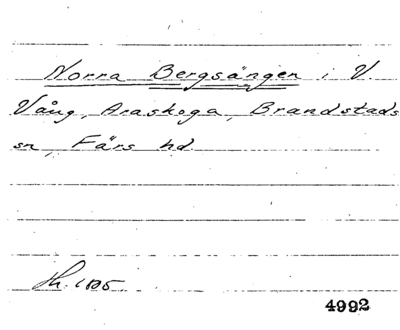 Norra Bergsängen i V.
Vång, Araskoga, Brandstads
sn, Färs hd.
4992